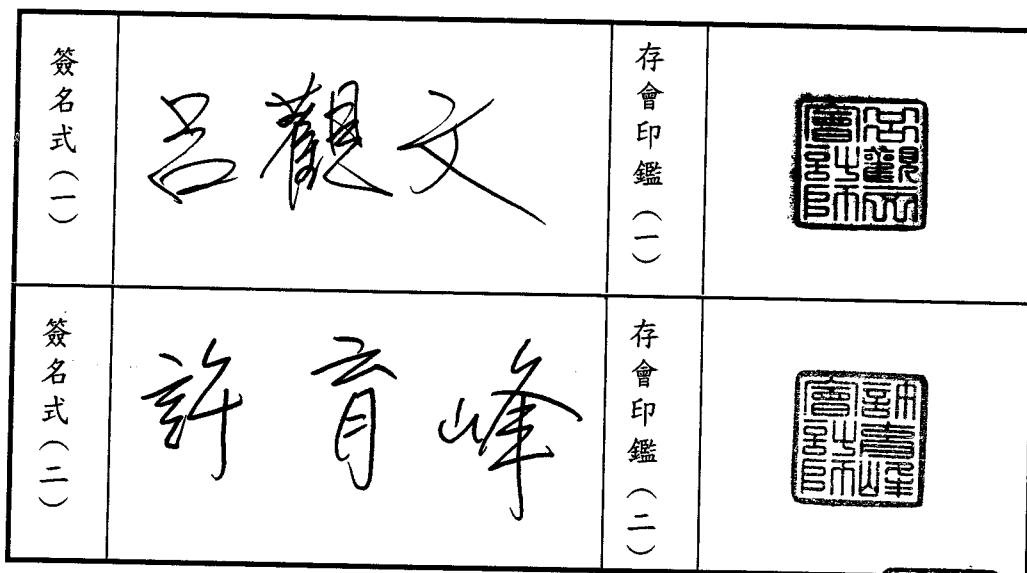 簽名式(一)
呂觀文
存會印鑑(一)
呂觀文會計師
簽名式(二)
許育峰
存會印鑑(二)
許育峰會計師